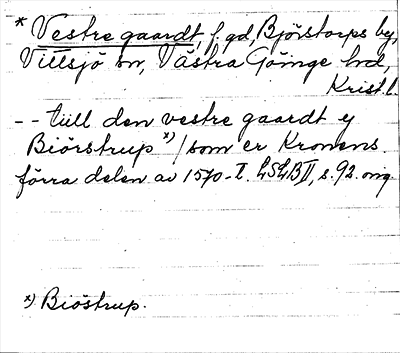 * Vestre gaardt, f. gd, Björstorps by,
Vittsjö sn, Västra Göinge hd,
Krist l.
-- till den vestre gaardt y
Biörstrup x) / som er Kronens.
förra delen av 1570-t. LSLB II, s. 92. orig.
x) Biöstrup.